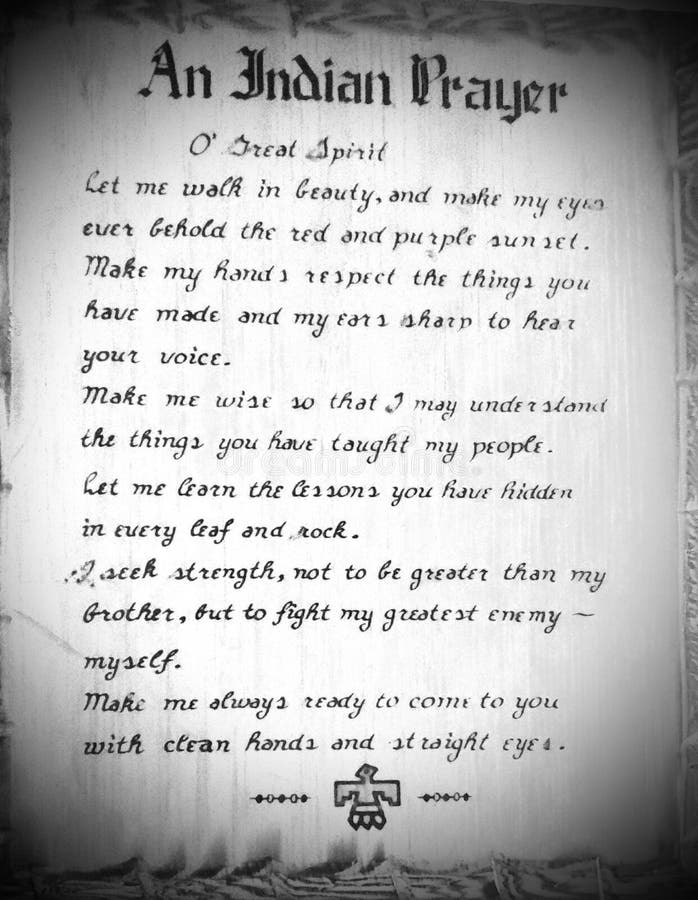 An Indian Prayer
O' Great Spirit
Let me walk in beauty, and make my eyes
ever behold the red and purple sunset.
Make my hands respect the things you
have made and my ears sharp to hear
your voice.
Make me wise so that I may understand
the things you have taught my people.
Let me learn the lessons you have hidden
in every leaf and rock.
I seek strength, not to be greater than my
brother, but to fight my greatest enemy –
myself.
Make me always ready to come to you
with clean hands and straight eyes.
dreamstime